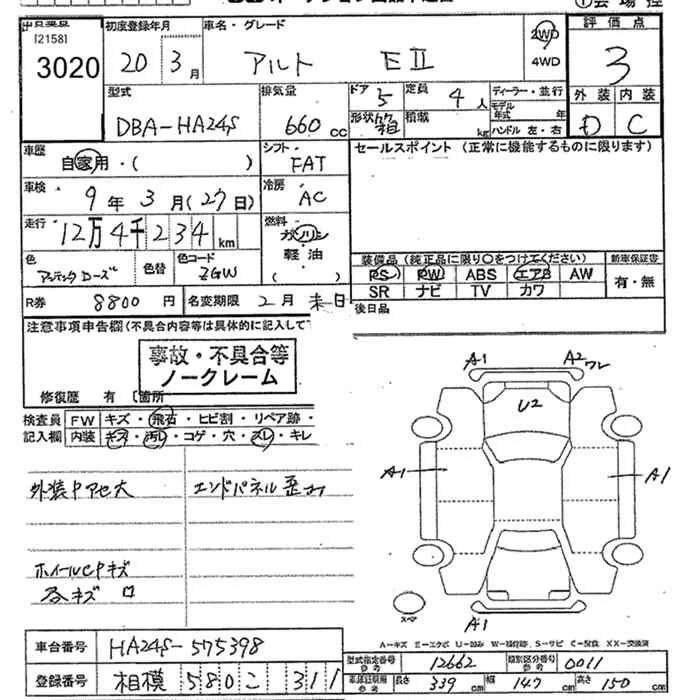 [2158]
3020
初度登録年月
20 年 3 月
車名・グレード
アルト EⅡ
2WD
4WD
評価点
3
外装 内装
D C
型式
DBA-HA24S
排気量
660 cc
ドア 5
定員 4 人
形状 箱
積載 kg
ディーラー・並行
モデル
年式 年
ハンドル 左・右
車歴
自家用・( )
シフト
FAT
セールスポイント (正常に機能するものに限ります)
車検
9 年 3 月 (27 日)
冷房
AC
走行
12万4千234 km
燃料
ガソリン
軽油
( )
色
アンティークローズ
色替
色コード
ZGW
装備品 (純正品に限り○をつけてください)
PS PW ABS エアB AW
SR ナビ TV カワ
新車保証書
有・無
R券 8800 円
名変期限 2 月 末 日
後日品
注意事項申告欄(不具合内容等は具体的に記入して
事故・不具合等
ノークレーム
修復歴 有 [箇所
検査員
記入欄
FW キズ・飛石・ヒビ割・リペア跡・
内装 キズ・汚レ・コゲ・穴・スレ・キレ
外装ヤアセ大
エンドパネル歪み
ホイールCPキズ
各キズ ロ
A1 A2 ワレ
U2
A1 A1
スペア
A1
A-キズ E-エクボ U-凹み W-補修跡 S-サビ C-腐蝕 XX-交換済
車台番号 HA24S-575398
登録番号 相模 580 こ 311
型式指定番号
参考
12662
類別区分番号
参考
0011
長さ 339 cm 幅 147 cm 高さ 150 cm